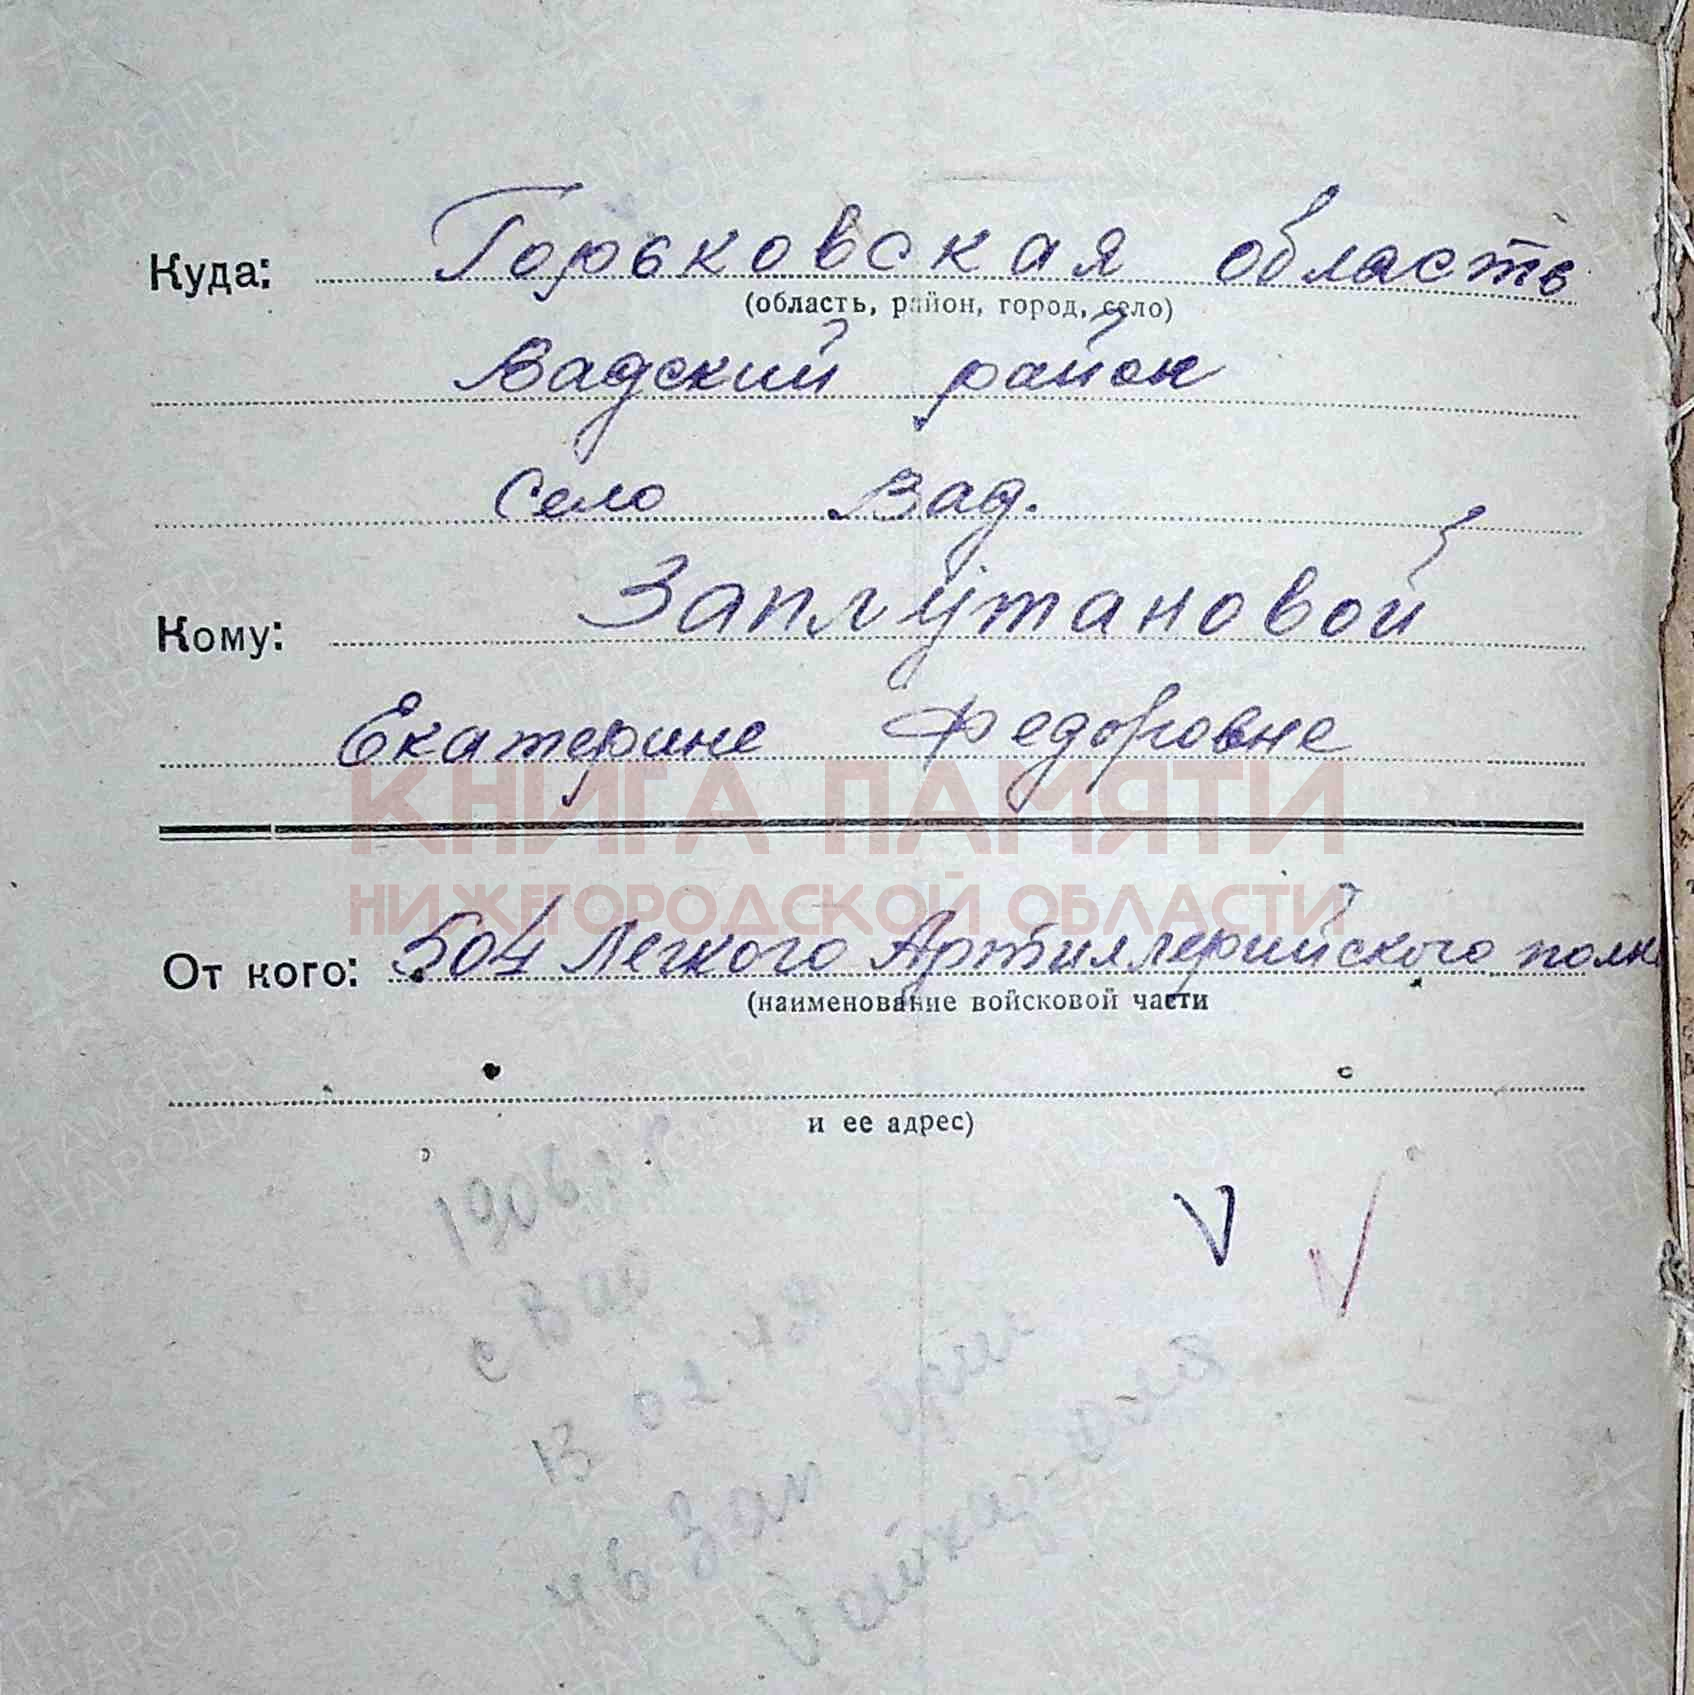 Куда: Горьковская область
(область, район, город, село)
Вадский район
Село Вад.
Кому: Заплутановой
Екатерине Федоровне
КНИГА ПАМЯТИ
НИЖЕГОРОДСКОЙ ОБЛАСТИ
От кого: 504 Легкого Артиллерийского полка
(наименование войсковой части
и ее адрес)
1906
с Вад
13 02 43